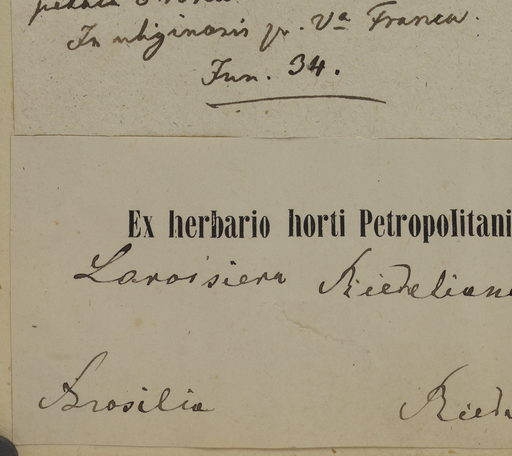 In uliginosis pr. Va Franca.
Jun. 34.
Ex herbario horti Petropolitani
Lavoisiera Riedeliana
Brasilia Riede